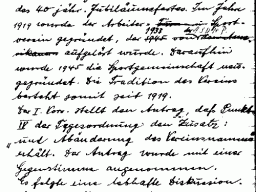 des 40 jähr. Jubiläumsfestes. Im Jahre
1919 wurde der Arbeiter- Sport-
verein gegründet, der 1933
aufgelöst wurde. Daraufhin
wurde 1945 die Sportgemeinschaft neu-
gegründet. Die Tradition des Vereins
besteht somit seit 1919.
Der I. Vors. stellt den Antrag, daß Punkt
IV der Tagesordnung den Zusatz:
"und Abänderung des Vereinsnamens
erhält. Der Antrag wurde mit einer
Gegenstimme angenommen.
Es folgte eine lebhafte Diskussion.